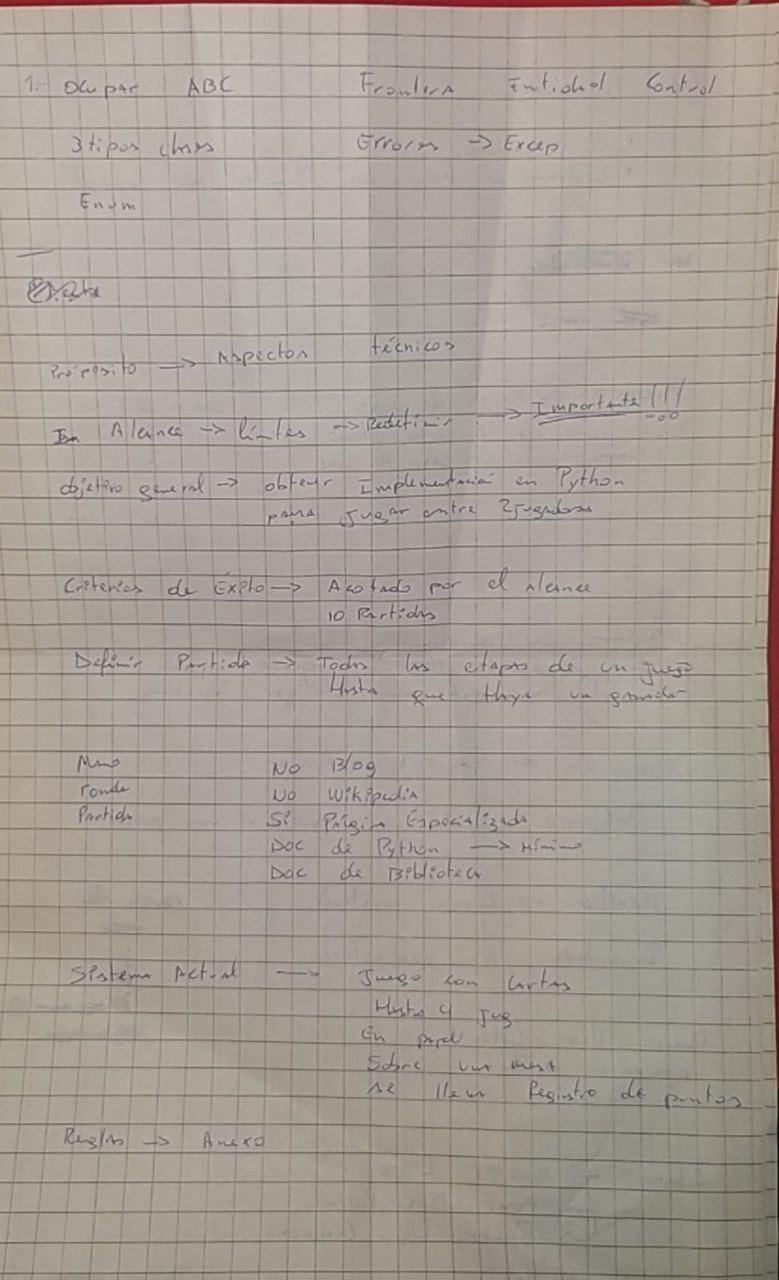 1.- Ocupar ABC Frontera Entidad Control
3 tipos clases Errores -> Excep
Enum
Propósito -> Aspectos técnicos
Alcance -> límites -> Redefinir -> Importante !!!
Objetivo general -> obtener Implementación en Python
para Jugar entre 2 jugadores
Criterios de Éxito -> Acotado por el alcance
10 Partidas
Definir Partida -> Todas las etapas de un juego
Hasta que Haya un ganador
Mano No Blog
ronda No Wikipedia
Partida Si Página Especializada
Doc de Python -> Mínimo
Doc de Biblioteca
Sistema Actual -> Juego con Cartas
Hasta 4 Jug
En papel
Sobre una mesa
se lleva Registro de puntos
Reglas -> Anexo